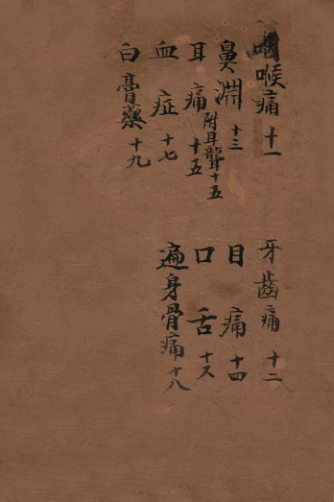 咽喉痛 十一
牙齒痛 十二
鼻淵 十三
目痛 十四
耳痛 十五
附耳聾十五
口舌 十六
血症 十七
遍身骨痛 十八
白膏藥 十九